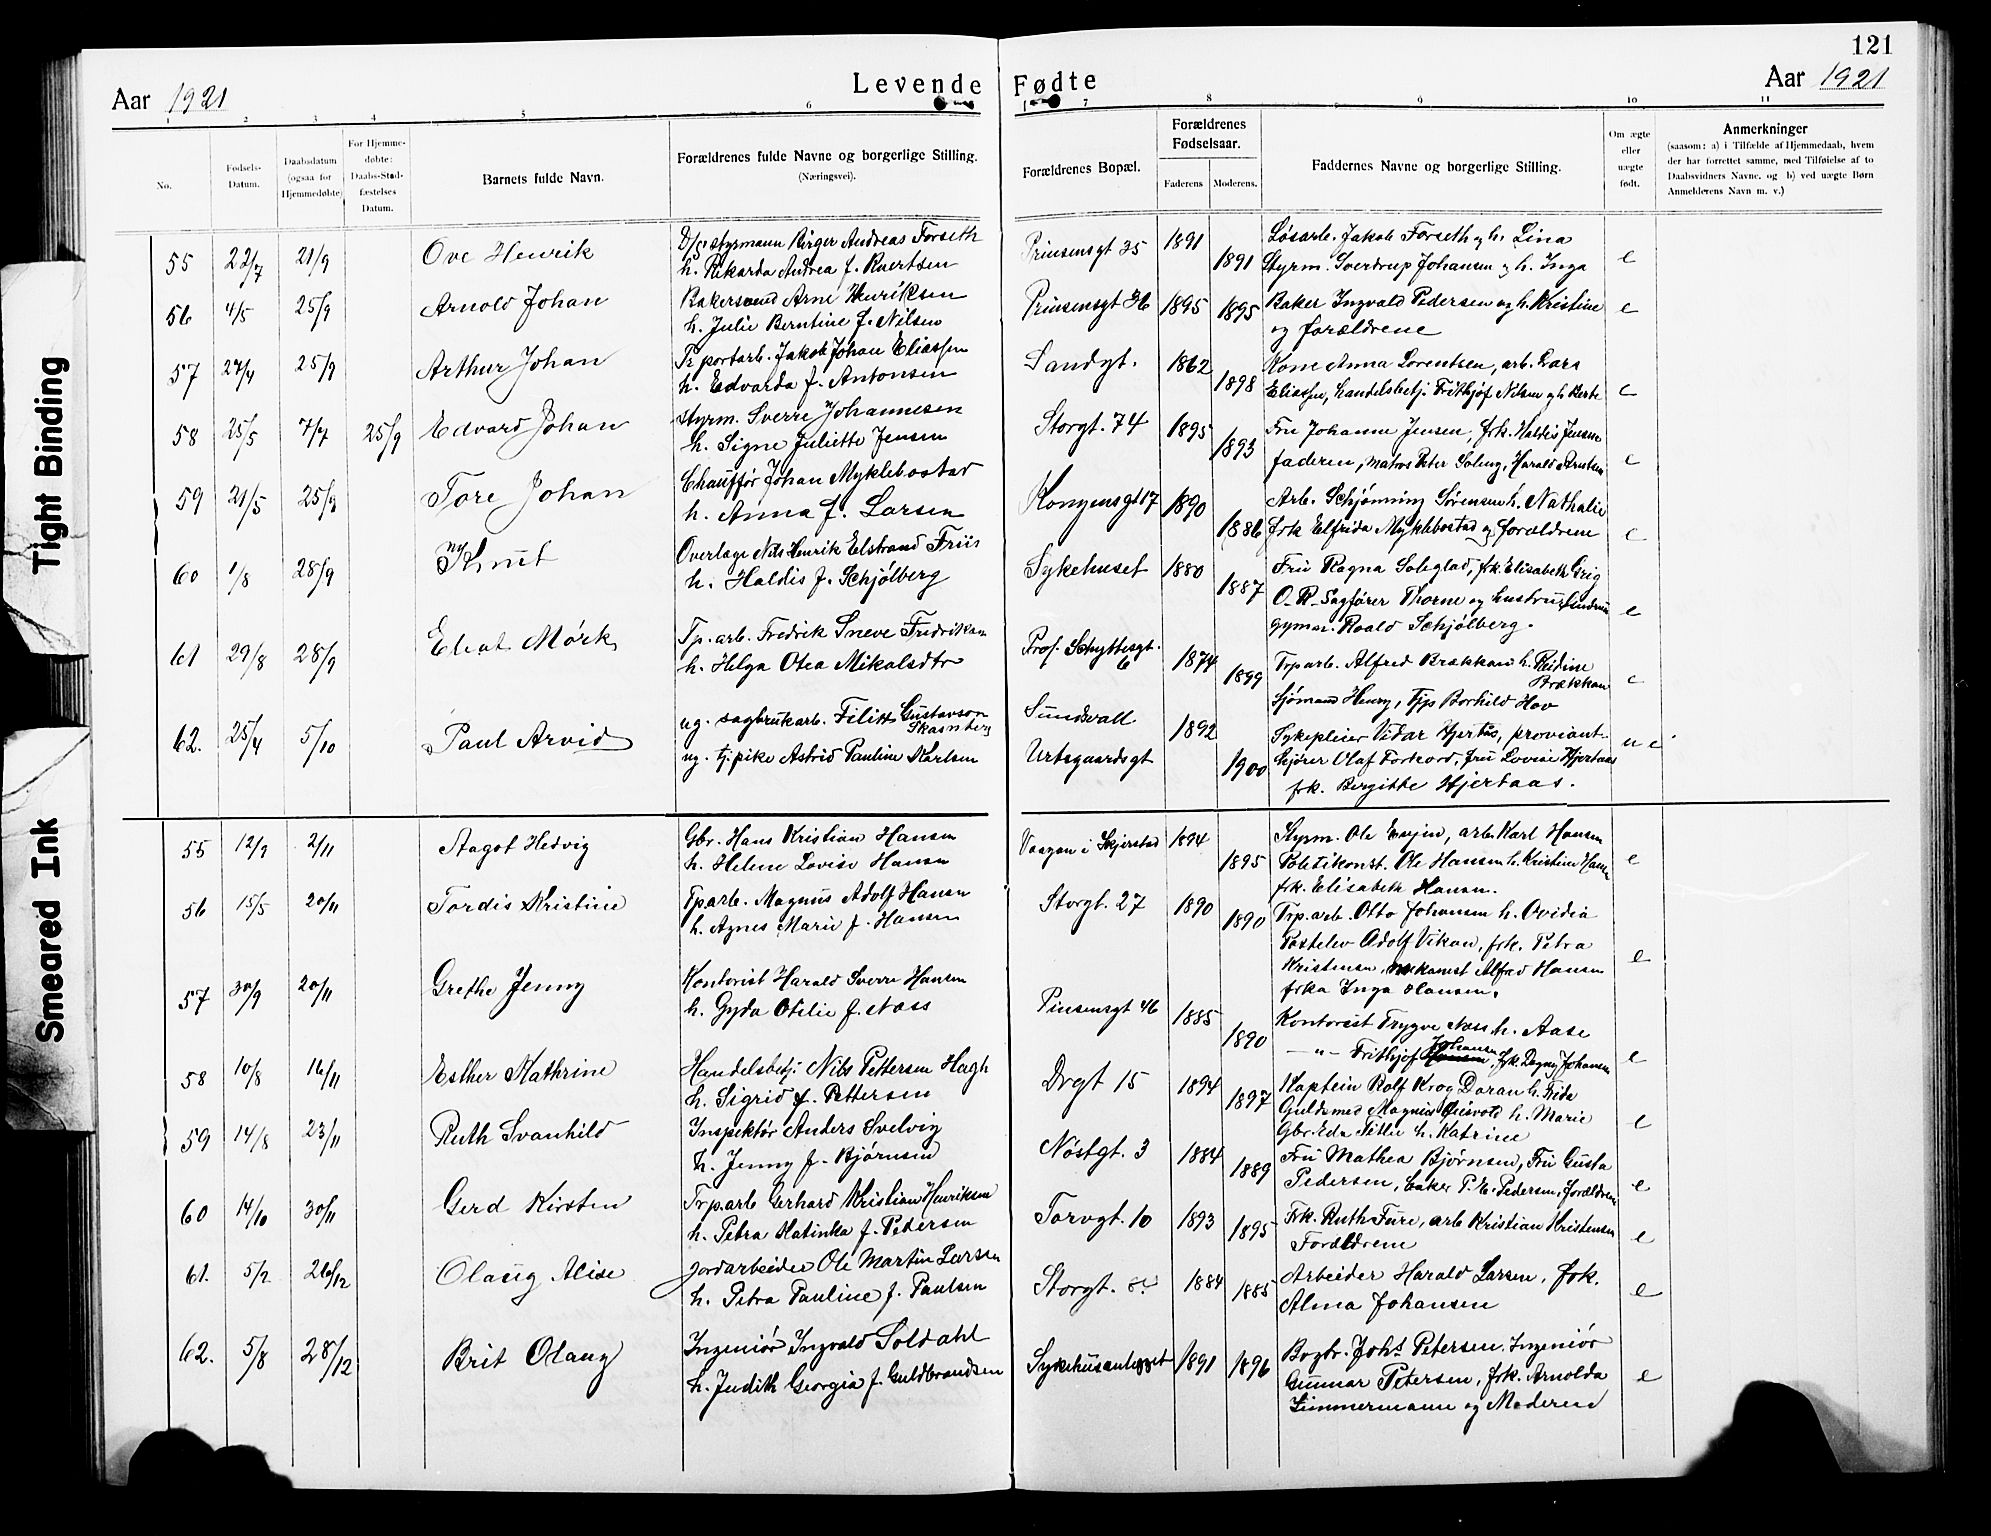 121
Levende Fødte
Aar 1921
Aar 1921
1 2 3 4 5 6 7 8 9 10 11
No.
Fødsels-Datum.
Daabsdatum (ogsaa for Hjemmedøbte)
For Hjemmedøbte: Daabs-Stadfæstelses Datum.
Barnets fulde Navn.
Forældrenes fulde Navne og borgerlige Stilling. (Næringsvei).
Forældrenes Bopæl.
Forældrenes Fødselsaar.
Faderens Moderens.
Faddernes Navne og borgerlige Stilling.
Om ægte eller uægte født.
Anmerkninger
(saasom: a) i Tilfælde af Hjemmedaab, hvem
der har forrettet samme, med Tilføielse af to
Daabsvidners Navne. og b) ved uægte Børn
Anmelderens Navn m. v.)
55 22/7 21/9 Ove Henrik D/S styrmann Birger Andreas Forseth Prinsensgt 35 1891 Løsarb. Jakob Forseth og h. Lina
h. Rikarda Andrea f. Evertsen 1891 Styrm. Sverdrup Johansen og h. Inga e
56 4/5 25/9 Arnold Johan Bakersvend Arne Henriksen Prinsensgt 1895 1895 Baker Ingvald Pedersen og h. Kristine e
h. Julie Berntine f. Nilsen og forældrene
57 27/4 25/9 Arthur Johan Trportarb. Jakob Johan Eliassen Sandgt. 1862 Kone Anna Lorentsen, arb. Lars
h. Edvarda f. Antonsen 1898 Eliassen, handelsbetj. Frithjof Nilsen og h. Berte e
58 25/5 7/7 25/9 Edvard Johan Styrm. Sverre Johannesen Storgt. 74 1895 Fru Johanne Jensen, frk. Haldis Jensen
h. Signe Juliette Jensen 1893 faderen, matros Peter Soleng, Harald Arntsen e
59 21/5 25/9 Tore Johan Chauffør Johan Myklebostad Kongensgt 17 1890 Arb. Schjønning Sørensen h. Nathalie
h. Anna f. Larsen 1886 frk Elfrida Myklebostad og forældrene e
60 1/8 28/9 Knut Overlæge Nils Henrik Elstrand Friis Sykehuset 1880 Fru Ragna Soleglad, frk. Elisabeth Grig
h. Haldis f. Schjølberg 1887 O.R. Sagfører Thorne og hustru
gymn. Roald Schjølberg. e
61 29/8 28/9 Eliat Mørk Tp. arb. Fredrik Sneve Fredriksen Prof. Schyttesgt. 6 1874 Trp arb. Alfred Brækkan h. Reidine Brækkan
h. Helga Otea Mikalsdtr 1899 Sjømann Henry, Tjp Borhild Hov e
62. 25/4 5/10 Paul Arvid ug. sagbruksarb. Filitt Gustavson Skarnberg Sundsvall 1892 Sykepleier Vidar Hjertås, proviant-
ug. tj. pike Astrid Pauline Karlsen Urtegaardsgt 1900 Olaf Forkord, fru Lovise Hjertaas u e
frk. Bergitte Hjertaas.
55 12/9 2/11 Aagot Hedvig Gbr. Hans Kristian Hansen Vaagan i Skjerstad 1894 Styrm. Ole Evjen, arb. Karl Hansen
h. Helene Lovise Hansen 1895 Politikonst. Ole Hansen h. Kristine Hansen e
frk. Elisabeth Hansen.
56 15/5 20/11 Tordis Kristine Tparb. Magnus Adolf Hansen Storgt. 27 1890 1890 Trp.arb. Otto Johansen h. Ovidia
h. Agnes Marie f. Hansen Postelev Adolf Vikan, frk. Petra e
Kristensen, mekanist Alfred Hansen
frka Inga Hansen.
57 30/9 20/11 Grethe Jenny Kontorist Harald Sverre Hansen Pinsensgt 46 1885 Kontorist Trygve Næss h. Aase
h. Gyda Otilie f. Næss 1890 —"— Frithjof Johansen, frk. Dagny Johansen e
58 10/8 16/11 Esther Kathrine Handelsbetj. Nils Pettersen Hagh Drgt 15 1894 Kaptein Rolf Krog Daran h. Fride
h. Sigrid f. Pettersen 1897 Guldsmed Magnus h. Marie e
Gbr. h. Katrine
59 14/8 23/11 Ruth Svanhild Inspektør Anders Svelvig Nøstgt. 3 1884 Fru Mathea Bjørnsen, Fru Gusta
h. Jenny f. Bjørnsen 1889 Pedersen, baker P. E. Pedersen, forældrene e
60 14/10 30/11 Gerd Kirsten Trp.arb Gerhard Kristian Henriksen Torvgt. 10 1893 Frk. Ruth Fure, arb Kristian Kristensen
h. Petra Katinka f. Pedersen 1895 Forældrene e
61. 5/2 26/12 Olaug Alise Jordarbeider Ole Martin Larsen Storgt. 1884 1885 Arbeider Harald Larsen, frk.
h. Petra Pauline f. Paulsen Alma Johansen e
62. 5/8 28/12 Brit Olaug Ingeniør Ingvald Soldahl Sykehusanlegget 1891 1896 Bogbr. Johs Petersen, Ingeniør
h. Judith Georgia f. Guldbrandsen Gunnar Petersen, frk. Arnolda e
Simmermann og Moderen
Tight Binding
Smeared Ink